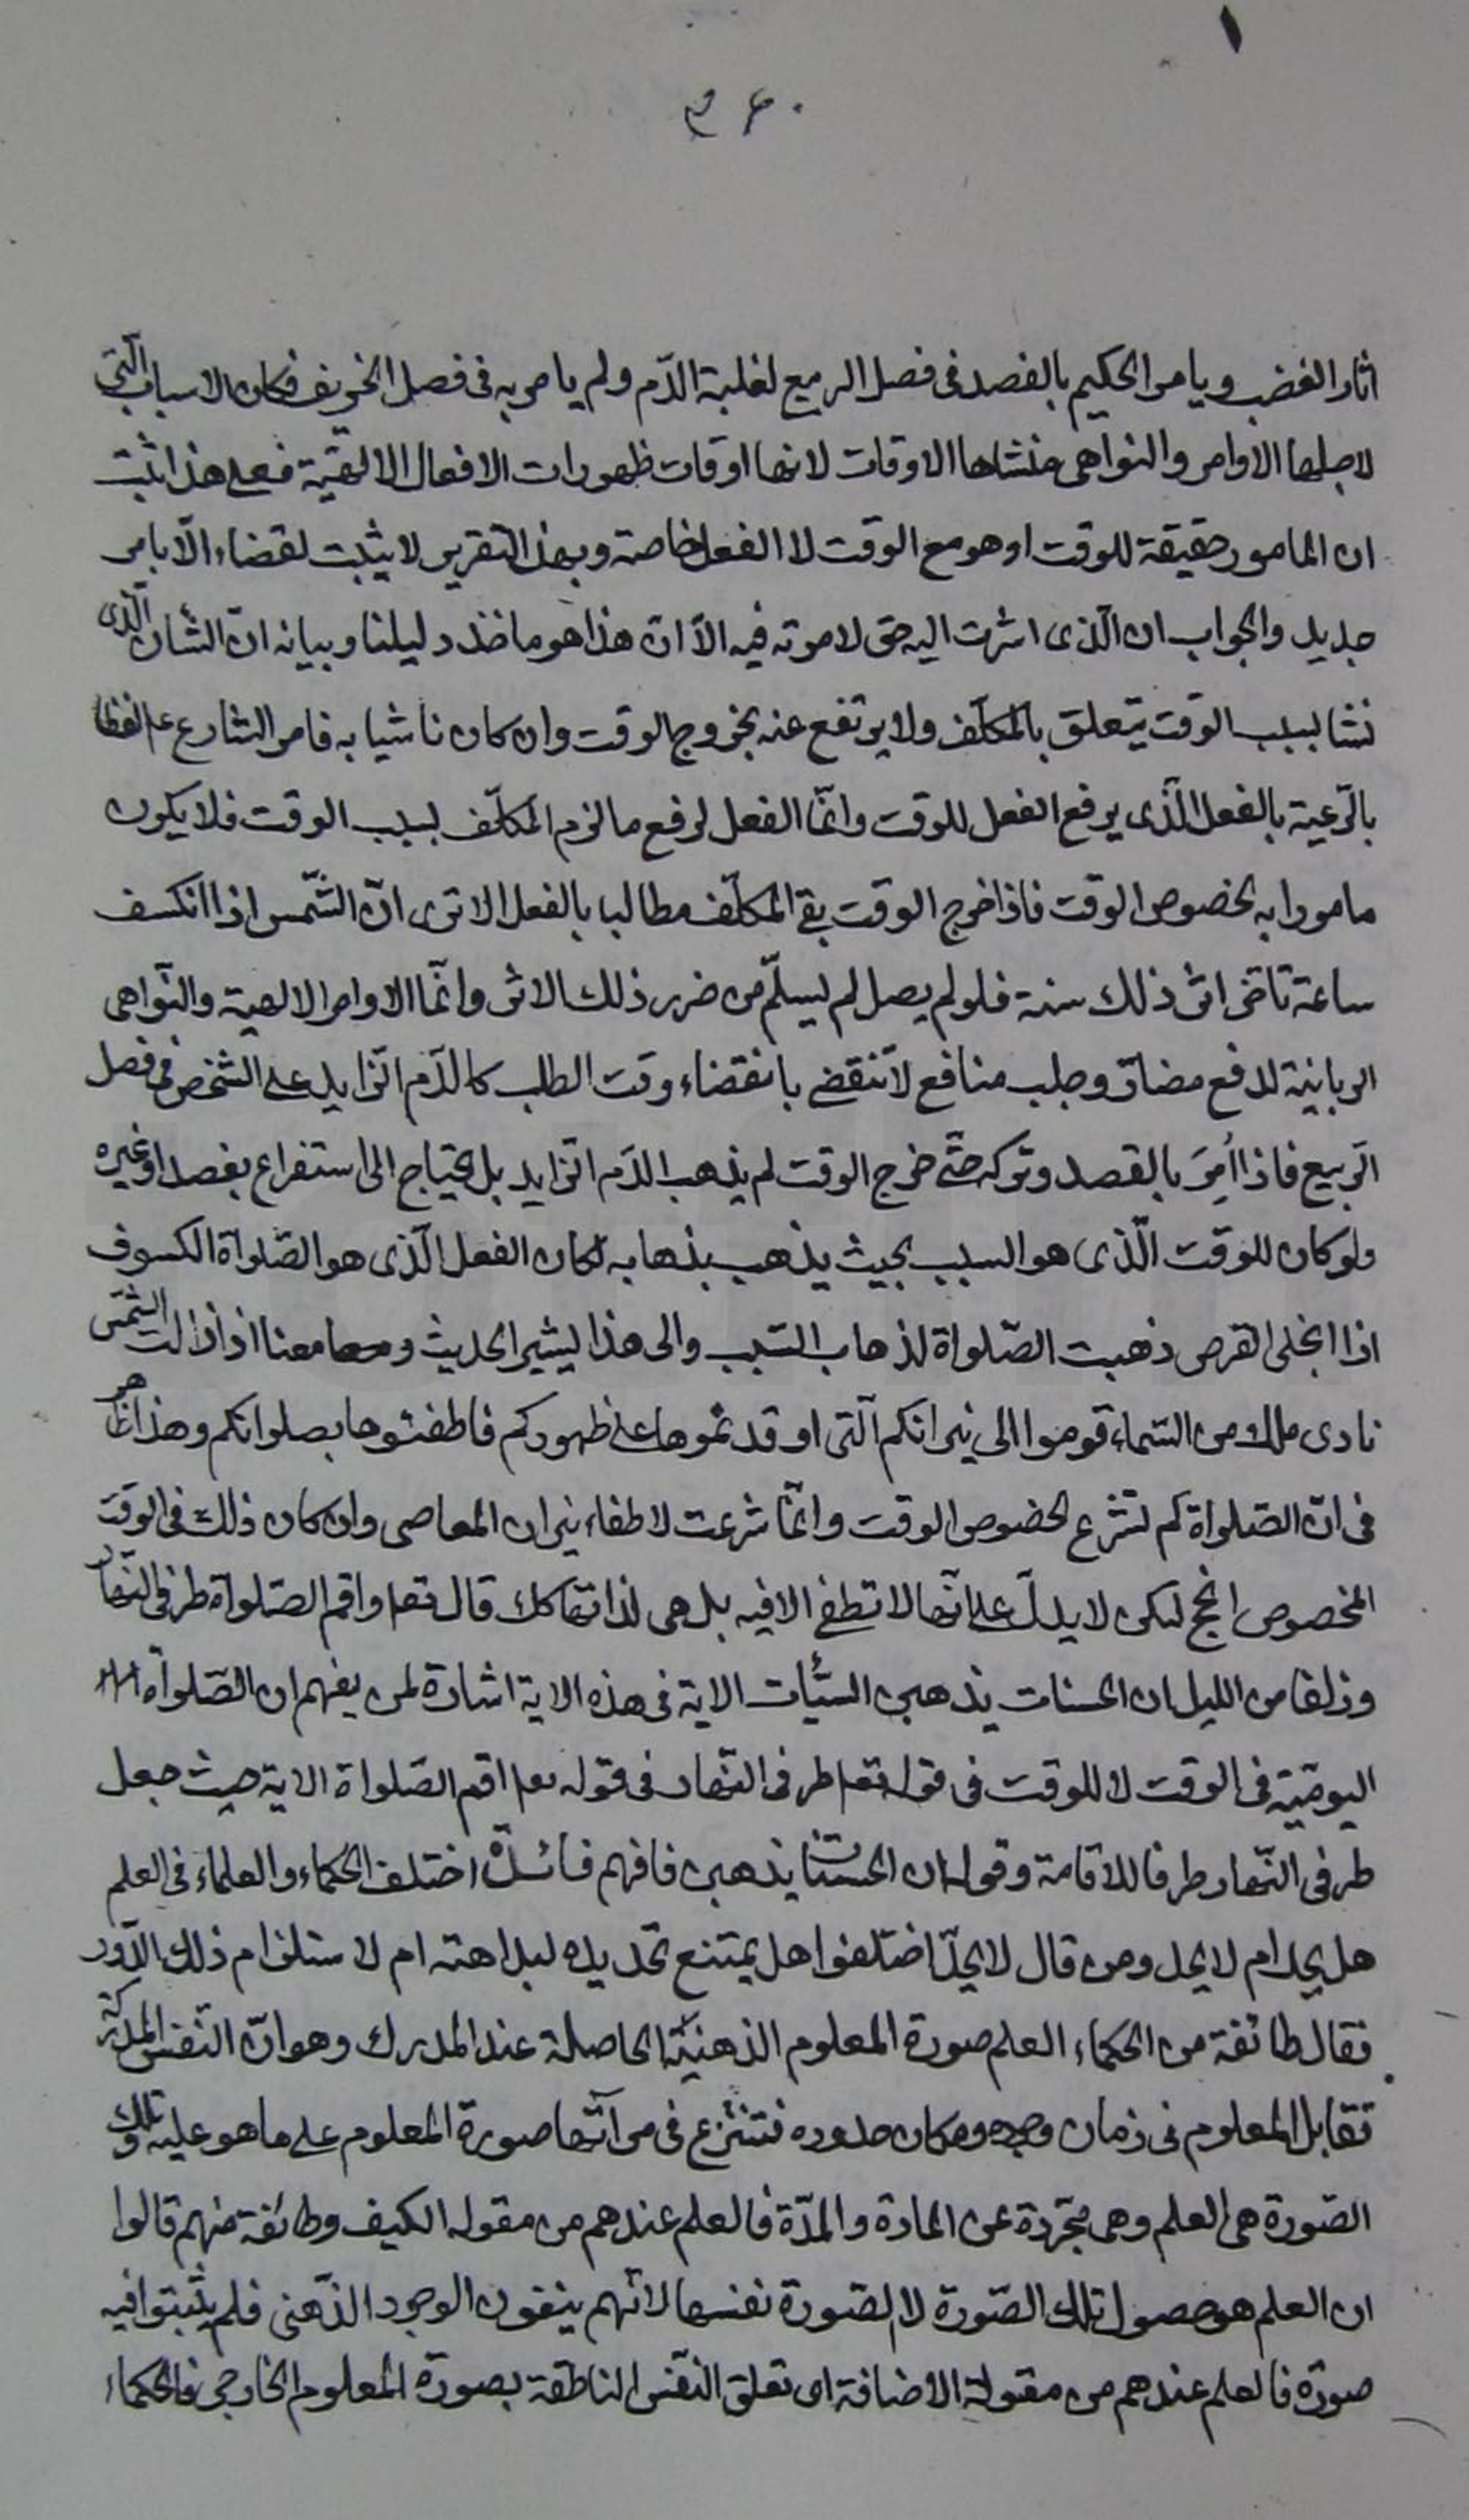 ٣٦٠
اثار الغضب ويامر الحكيم بالفصد فى فصل الربيع لغلبة الدّم ولم يامر به فى فصل الخريف فكان الاسباب الّتى
لاجلها الاوامر والنواهى منشاها الاوقات لانها اوقات ظهورات الافعال الالهيّة فعلى هذا ثبت
ان المامور حقيقة للوقت او هو مع الوقت لا الفعل خاصة وبهذا التقرير لا يثبت لقضاء الّا بامر
جديد والجواب ان الّذى اشرت اليه حق لا مرية فيه الّا انّ هذا هو ماخذ دليلنا وبيانه انّ الشان الّذى
نشا بسبب الوقت يتعلق بالمكلّف ولا يرتفع عنه بخروج الوقت وان كان ناشيا به فامر الشارع ع
بالرّعية بالفعل الّذى يرفع الفعل للوقت وانّما الفعل لرفع ما لزم المكلّف بسبب الوقت فلا يكون
مامورا به لخصوص الوقت فاذا خرج الوقت بقى المكلّف مطالبا بالفعل الا ترى انّ الشّمس اذا انكسف
ساعة تاخر اثر ذلك سنة فلو لم يصل لم يسلّم من ضرر ذلك الاثر وانّما الاوامر الالهية والنّواهى
الربانية لدفع مضارّ وجلب منافع لا تنقضى بانقضاء وقت الطلب كالدّم الزايد على الشخص فى فصل
الرّبيع فاذا اُمِرَ بالفصد وتركه حتّى خرج الوقت لم يذهب الدّم الزّايد بل يحتاج الى استفراغ بفصد او غيره
ولو كان للوقت الّذى هو السبب بحيث يذهب بذهابه لكان الفعل الّذى هو الصّلواة الكسوف
اذا انجلى القرص ذهبت الصّلواة لذهاب السّبب والى هذا يشير الحديث ومعا معنا اذا زالت الشّمس
نادى ملك من السّماء قوموا الى نيرانكم الّتى اوقدتموها على ظهوركم فاطفئوها بصلواتكم وهذا ظاهر
فى انّ الصّلواة لم تشرع لخصوص الوقت وانّما شرعت لاطفاء نيران المعاصى وان كان ذلك فى الوقت
المخصوص انجح لكن لا يدلّ على انّها لا تطفئ الا فيه بل هى لذاتها كك قال تعا واقم الصّلواة طرفى النّهار
وزلفا من الليل ان الحسنات يذهبن السّيئات الاية فى هذه الاية اشارة لمن يفهم ان الصّلواة
اليوميّة فى الوقت لا للوقت فى قوله تعا طرفى النّهار فى قوله تعا اقم الصّلواة الاية حيث جعل
طرفى النّهار طرفا للاقامة وقوله ان الحسنات يذهبن فافهم فائدة اختلف الحكماء والعلماء فى العلم
هل يحد ام لا يحد ومن قال لا يحدّ اختلفوا هل يمتنع تحديده لبداهته ام لاستلزام ذلك الدّور
فقال طائفة من الحكماء العلم صورة المعلوم الذهنيّة الحاصلة عند المدرك وهو انّ النّفس المدركة
تقابل المعلوم فى زمان وجوده ومكان حدوده فتنتزع فى مرآتها صورة المعلوم على ما هو عليه وتلك
الصّورة هى العلم وهى مجرّدة عن المادة والمدّة فالعلم عندهم من مقولة الكيف وطائفة منهم قالوا
ان العلم هو حصول تلك الصّورة لا الصّورة نفسها لانّهم ينفون الوجود الذّهنى فلم يثبتوا فيه
صورة فالعلم عندهم من مقولة الاضافة اى تعلق النّفس الناطقة بصورة المعلوم الخارجى فالحكماء